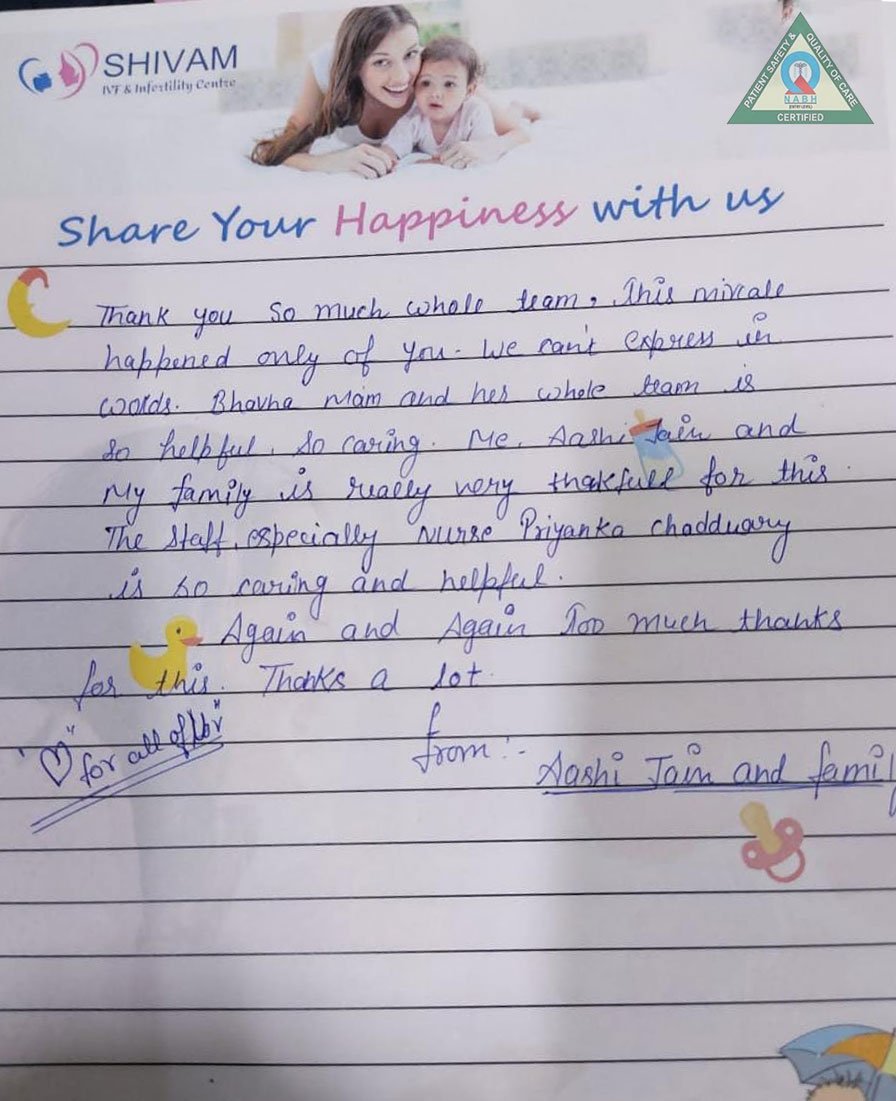 SHIVAM
IVF & Infertility Centre
PATIENT SAFETY &
QUALITY OF CARE
NABH
CERTIFIED
Share Your Happiness with us
Thank you so much whole team, This mircale
happened only of you. We can't express in
words. Bhavna Mam and her whole team is
so helpful, so caring. Me, Aashi Jain and
My family is really very thakfull for this.
The staff, especially Nurse Priyanka chadduary
is so caring and helpful.
Again and Again Too much thanks
for this. Thanks a lot.
"♡ for all of
from :-
Aashi Jain and family